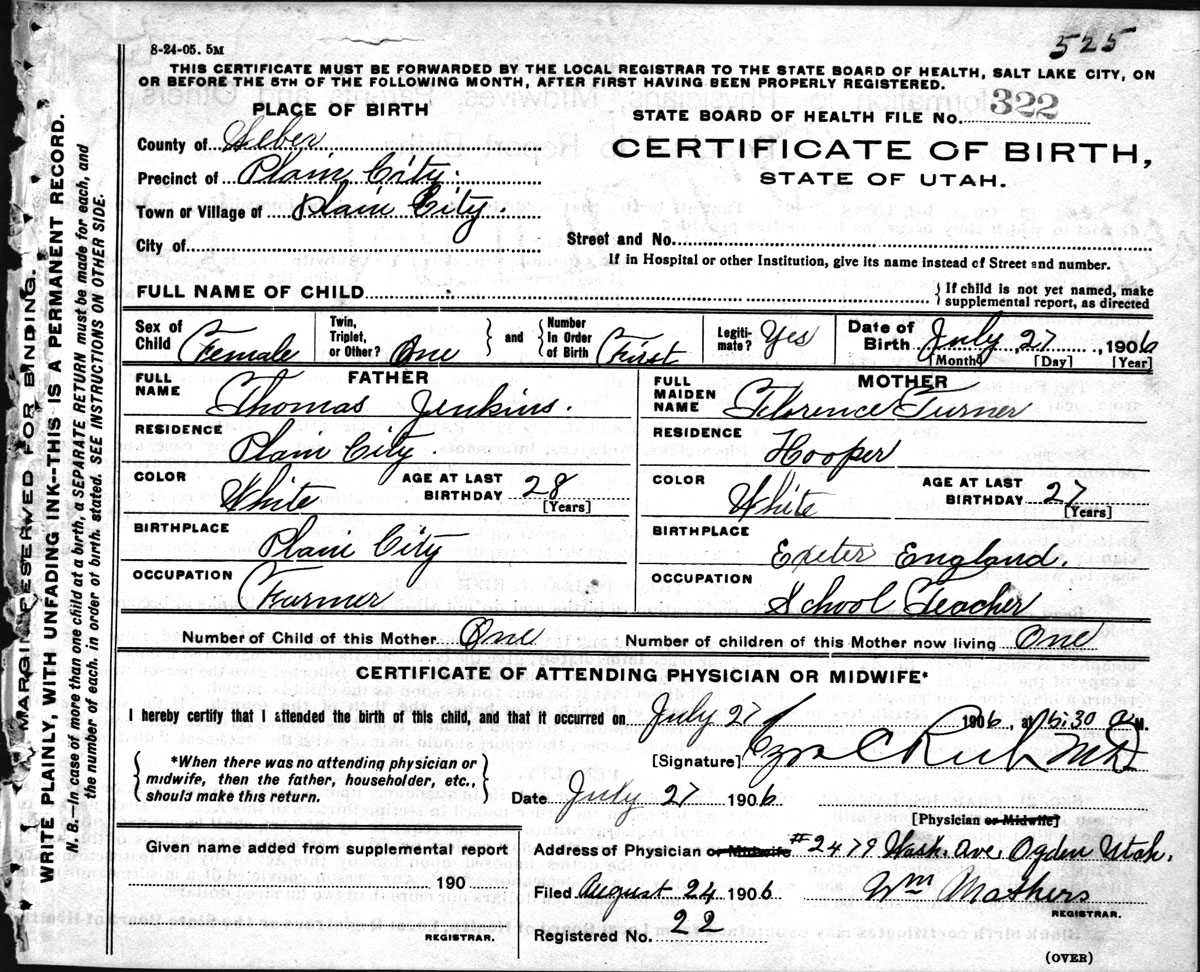 8-24-05. 5M
525
THIS CERTIFICATE MUST BE FORWARDED BY THE LOCAL REGISTRAR TO THE STATE BOARD OF HEALTH, SALT LAKE CITY, ON
OR BEFORE THE 5TH OF THE FOLLOWING MONTH, AFTER FIRST HAVING BEEN PROPERLY REGISTERED.
PLACE OF BIRTH
STATE BOARD OF HEALTH FILE No. 322
County of Weber
CERTIFICATE OF BIRTH,
Precinct of Plain City.
STATE OF UTAH.
Town or Village of Plain City.
City of
Street and No.
If in Hospital or other Institution, give its name instead of Street and number.
FULL NAME OF CHILD
{ If child is not yet named, make
supplemental report, as directed
Sex of Child Female
Twin, Triplet, or Other? One } and { Number In Order of Birth First
Legiti-mate? Yes
Date of Birth July 27, 1906
[Month] [Day] [Year]
FATHER
MOTHER
FULL NAME Thomas Jenkins.
FULL MAIDEN NAME Florence Turner
RESIDENCE Plain City
RESIDENCE Hooper
COLOR White AGE AT LAST BIRTHDAY 28 [Years]
COLOR White AGE AT LAST BIRTHDAY 27 [Years]
BIRTHPLACE Plain City
BIRTHPLACE Exeter England.
OCCUPATION Farmer
OCCUPATION School Teacher
Number of Child of this Mother One Number of children of this Mother now living One
CERTIFICATE OF ATTENDING PHYSICIAN OR MIDWIFE*
I hereby certify that I attended the birth of this child, and that it occurred on July 27 1906, at :30 a M.
{ *When there was no attending physician or
midwife, then the father, householder, etc.,
should make this return. }
[Signature] Ezra C Rich MD
Date July 27 1906
[Physician or Midwife]
Given name added from supplemental report
190
REGISTRAR.
Address of Physician or Midwife #2479 Wash. Ave. Ogden Utah.
Filed August 24 1906 Wm Mathers
REGISTRAR.
Registered No. 22
(OVER)
MARGIN RESERVED FOR BINDING.
WRITE PLAINLY, WITH UNFADING INK--THIS IS A PERMANENT RECORD.
N. B.--In case of more than one child at a birth, a SEPARATE RETURN must be made for each, and
the number of each, in order of birth, stated. SEE INSTRUCTIONS ON OTHER SIDE.